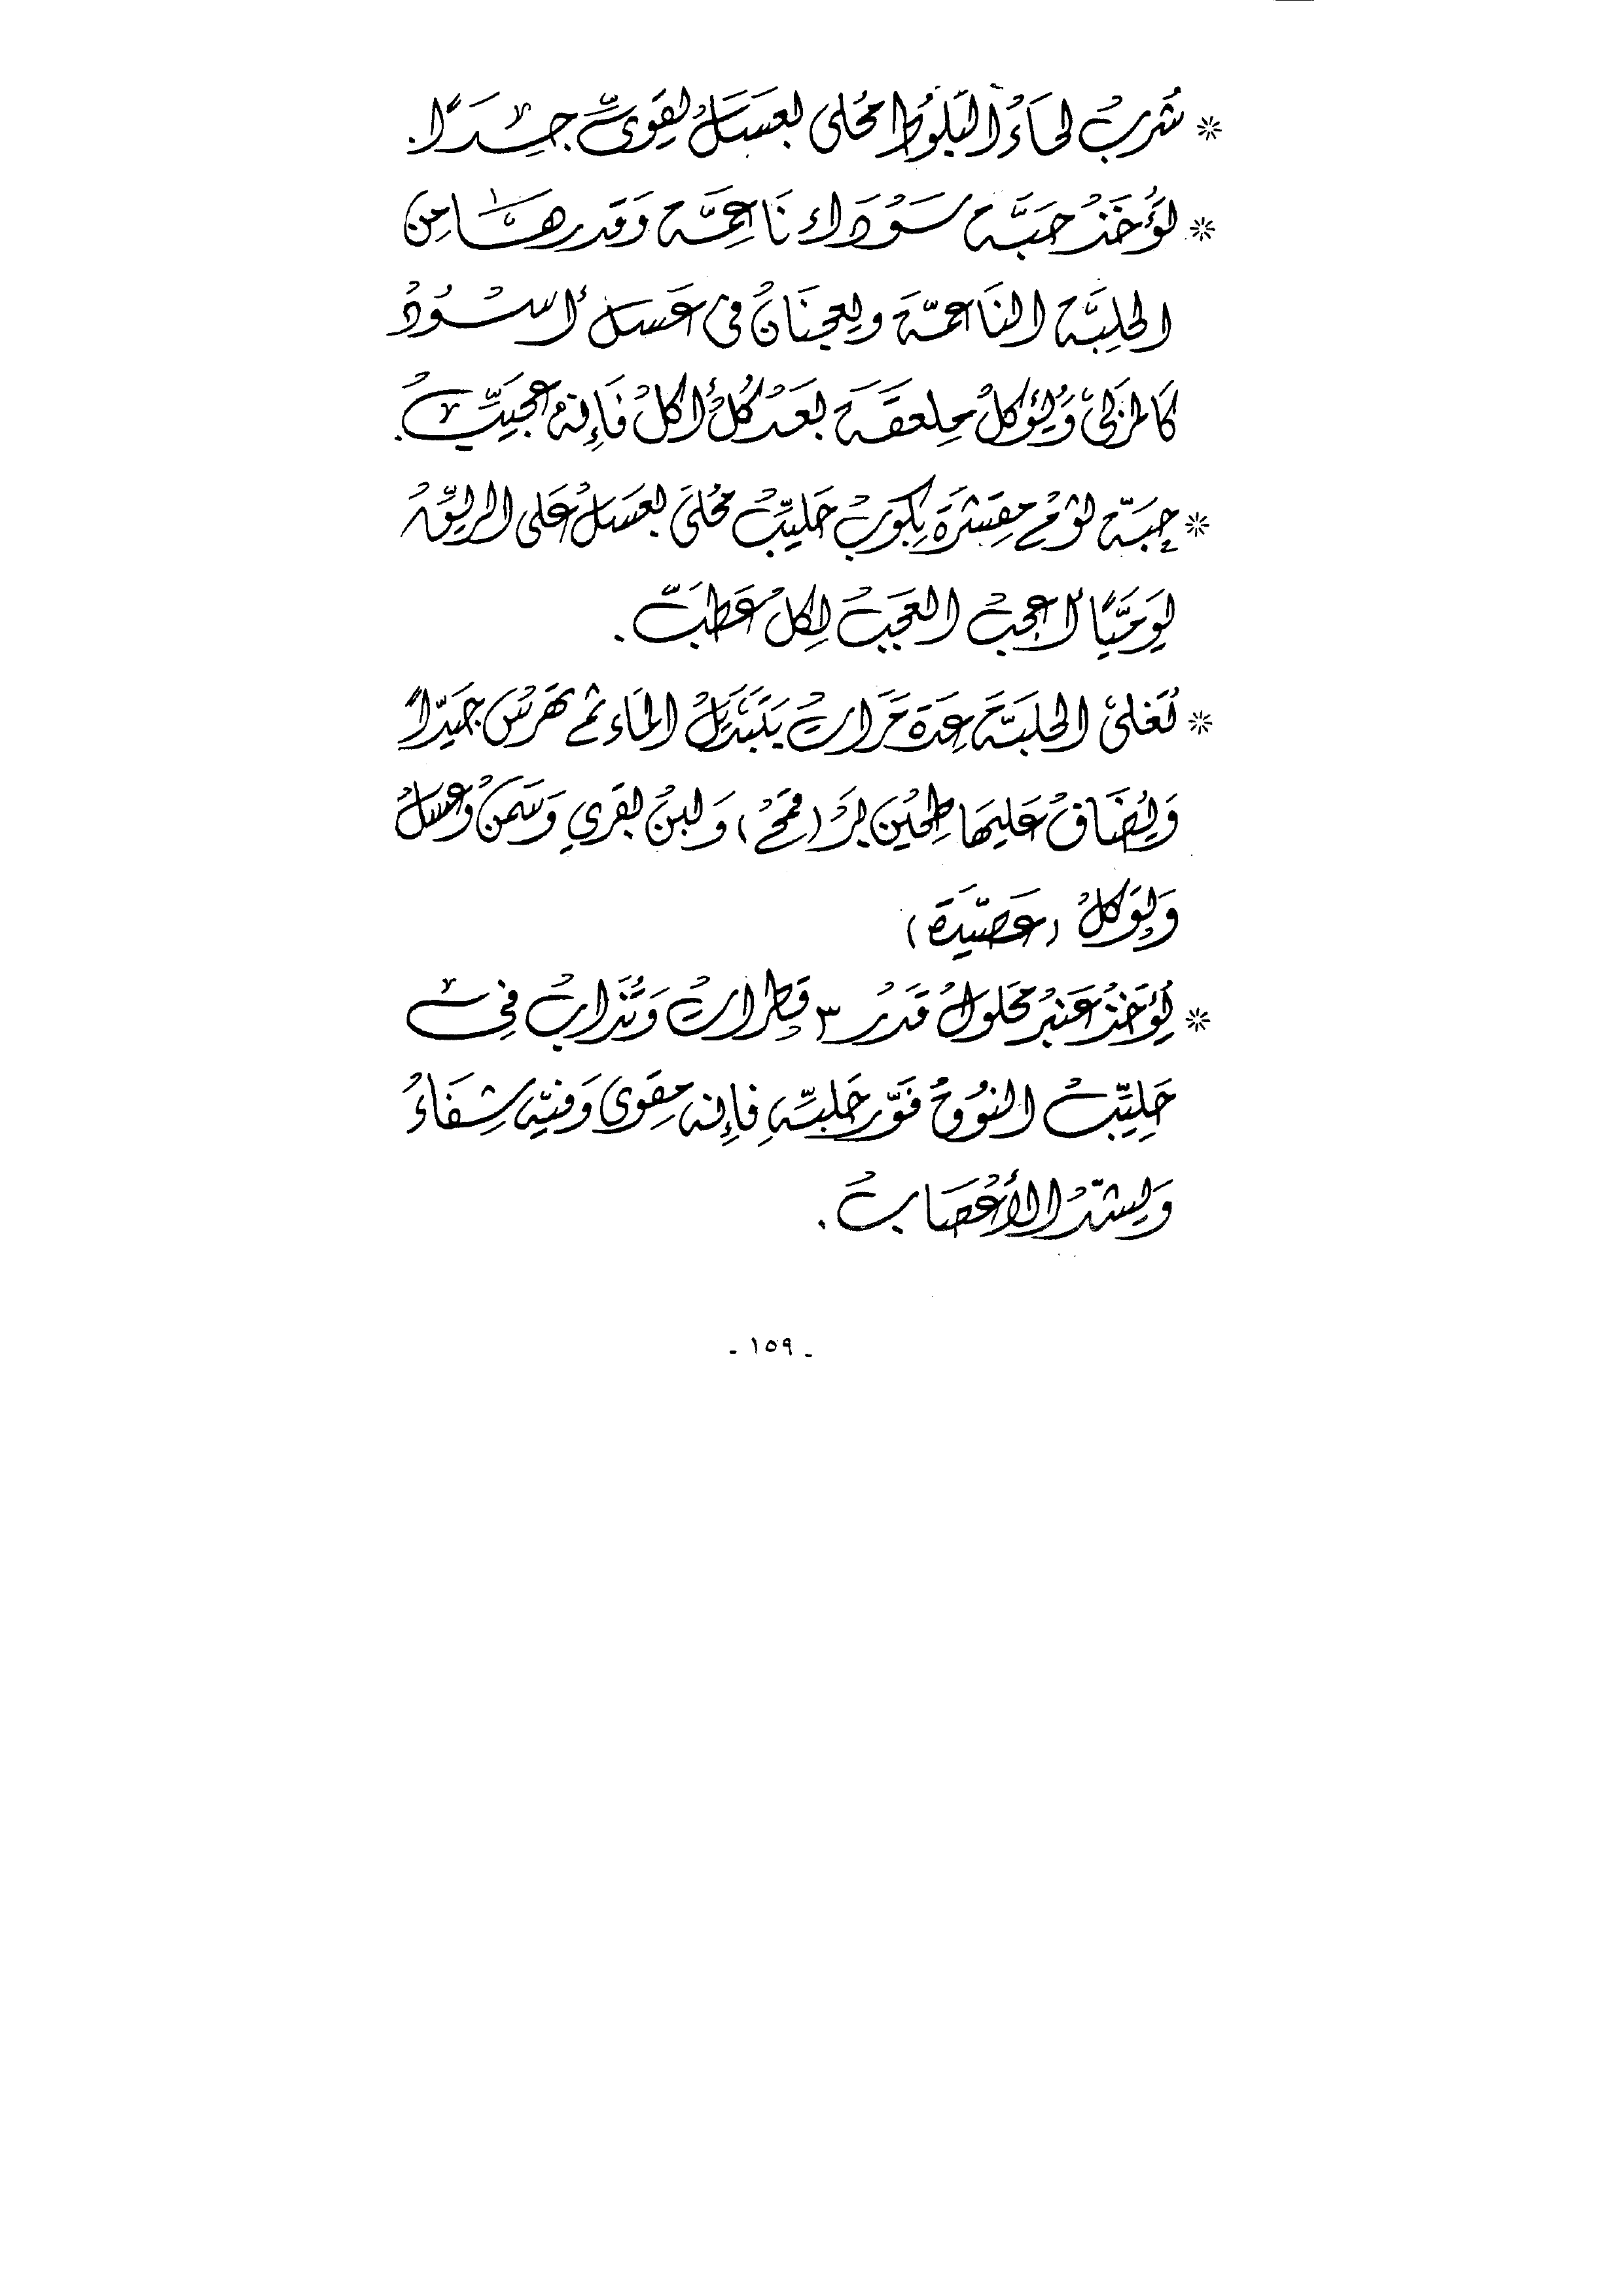 * شرب لحاء البلوط محلى بعسل يقوي جدًا.
* تؤخذ حبة سوداء ناعمة وقدرها من
الحلبة الناعمة ويعجنان في عسل أسود
كالمربى ويؤكل ملعقة بعد كل أكل فإنه عجيب.
* حبة ثوم مقشرة بكوب حليب محلى بعسل على الريق
يوميًا أعجب العجب لكل عطب.
* تغلى الحلبة عدة مرات بتبديل الماء ثم تهرس جيدًا
ويضاف عليها طحين بر (قمح) ولبن بقري وسمن وعسل
ويؤكل (عصيدة)
* يؤخذ عنبر محلول قدر ٣ قطرات وتذاب في
حليب النوق فور حلبه فإنه مقوي وفيه شفاء
ويشد الأعصاب.
- ١٥٩ -